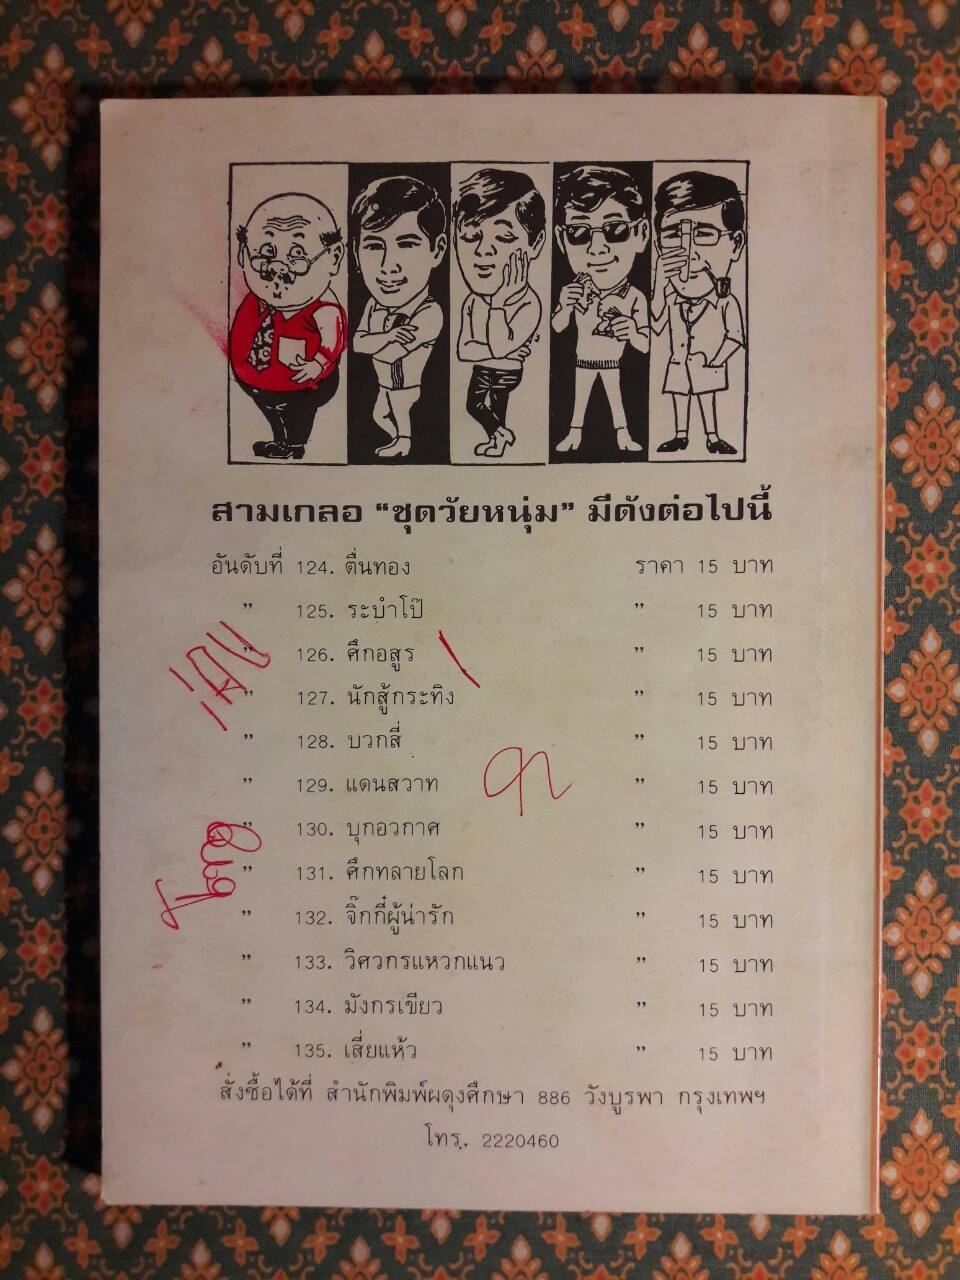 สามเกลอ “ชุดวัยหนุ่ม” มีดังต่อไปนี้
อันดับที่ 124. ตื่นทอง ราคา 15 บาท
” 125. ระบำโป๊ ” 15 บาท
” 126. ศึกอสูร ” 15 บาท
” 127. นักสู้กระทิง ” 15 บาท
” 128. บวกสี่ ” 15 บาท
” 129. แดนสวาท ” 15 บาท
” 130. บุกอวกาศ ” 15 บาท
” 131. ศึกทลายโลก ” 15 บาท
” 132. จิ๊กกี๋ผู้น่ารัก ” 15 บาท
” 133. วิศวกรแหวกแนว ” 15 บาท
” 134. มังกรเขียว ” 15 บาท
” 135. เสี่ยแห้ว ” 15 บาท
สั่งซื้อได้ที่ สำนักพิมพ์ผดุงศึกษา 886 วังบูรพา กรุงเทพฯ
โทร. 2220460